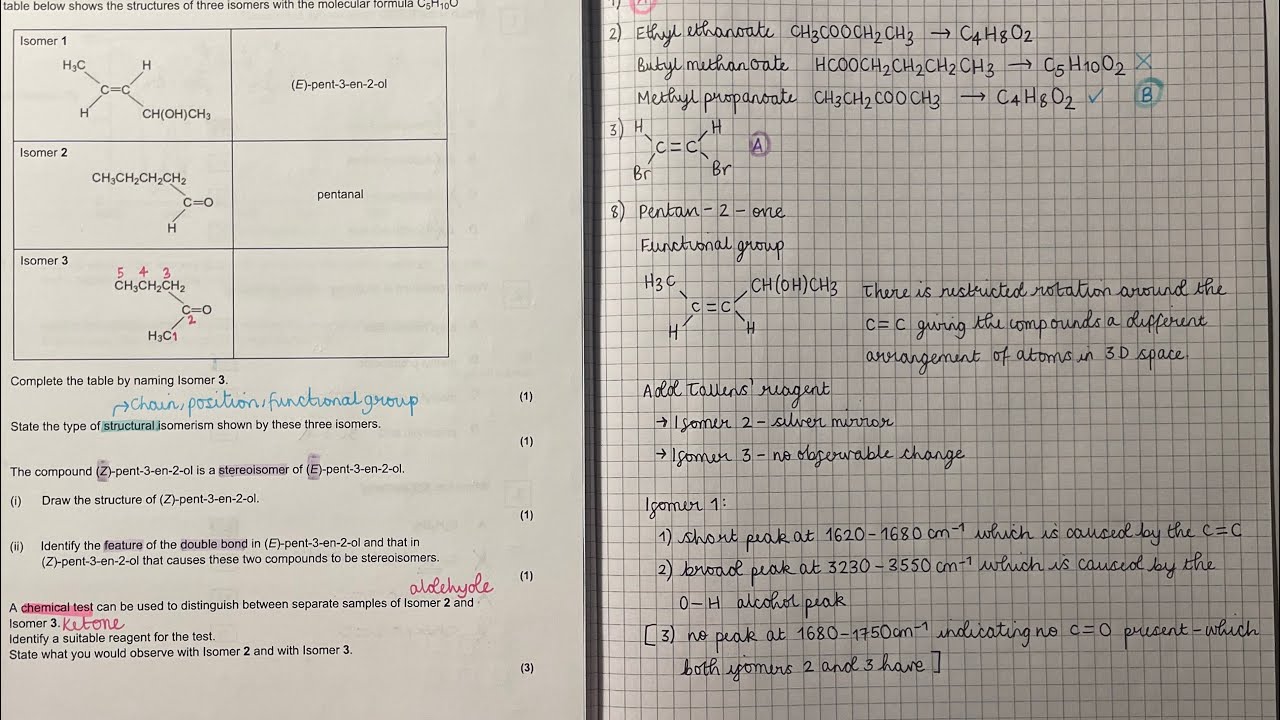 table below shows the structures of three isomers with the molecular formula C5H10O
Isomer 1
H3C
H
C=C
H
CH(OH)CH3
(E)-pent-3-en-2-ol
Isomer 2
CH3CH2CH2CH2
C=O
H
pentanal
Isomer 3
5 4 3
CH3CH2CH2
C=O
2
H3C1
Complete the table by naming Isomer 3.
(1)
→Chain, position, functional group
State the type of structural isomerism shown by these three isomers.
(1)
The compound (Z)-pent-3-en-2-ol is a stereoisomer of (E)-pent-3-en-2-ol.
(i) Draw the structure of (Z)-pent-3-en-2-ol.
(1)
(ii) Identify the feature of the double bond in (E)-pent-3-en-2-ol and that in
(Z)-pent-3-en-2-ol that causes these two compounds to be stereoisomers.
(1)
aldehyde
A chemical test can be used to distinguish between separate samples of Isomer 2 and
Isomer 3. Ketone
Identify a suitable reagent for the test.
State what you would observe with Isomer 2 and with Isomer 3.
(3)
1) A
2) Ethyl ethanoate CH3COOCH2CH3 → C4H8O2
Butyl methanoate HCOOCH2CH2CH2CH3 → C5H10O2 ✗
Methyl propanoate CH3CH2COOCH3 → C4H8O2 ✓ B
3) H H
C=C A
Br Br
8) Pentan-2-one
Functional group
H3C CH(OH)CH3
C=C
H H
There is restricted rotation around the
C=C giving the compounds a different
arrangement of atoms in 3D space.
Add Tollens' reagent
→ Isomer 2 - silver mirror
→ Isomer 3 - no observable change
Isomer 1:
1) short peak at 1620-1680 cm⁻¹ which is caused by the C=C
2) broad peak at 3230-3550 cm⁻¹ which is caused by the
O-H alcohol peak
[3) no peak at 1680-1750cm⁻¹ indicating no C=O present - which
both isomers 2 and 3 have]